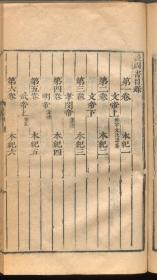 周書目錄
第一卷 本紀一
文帝上
第二卷 本紀二
文帝下
第三卷 本紀三
孝閔帝
第四卷 本紀四
明帝
第五卷 本紀五
武帝上
第六卷 本紀六